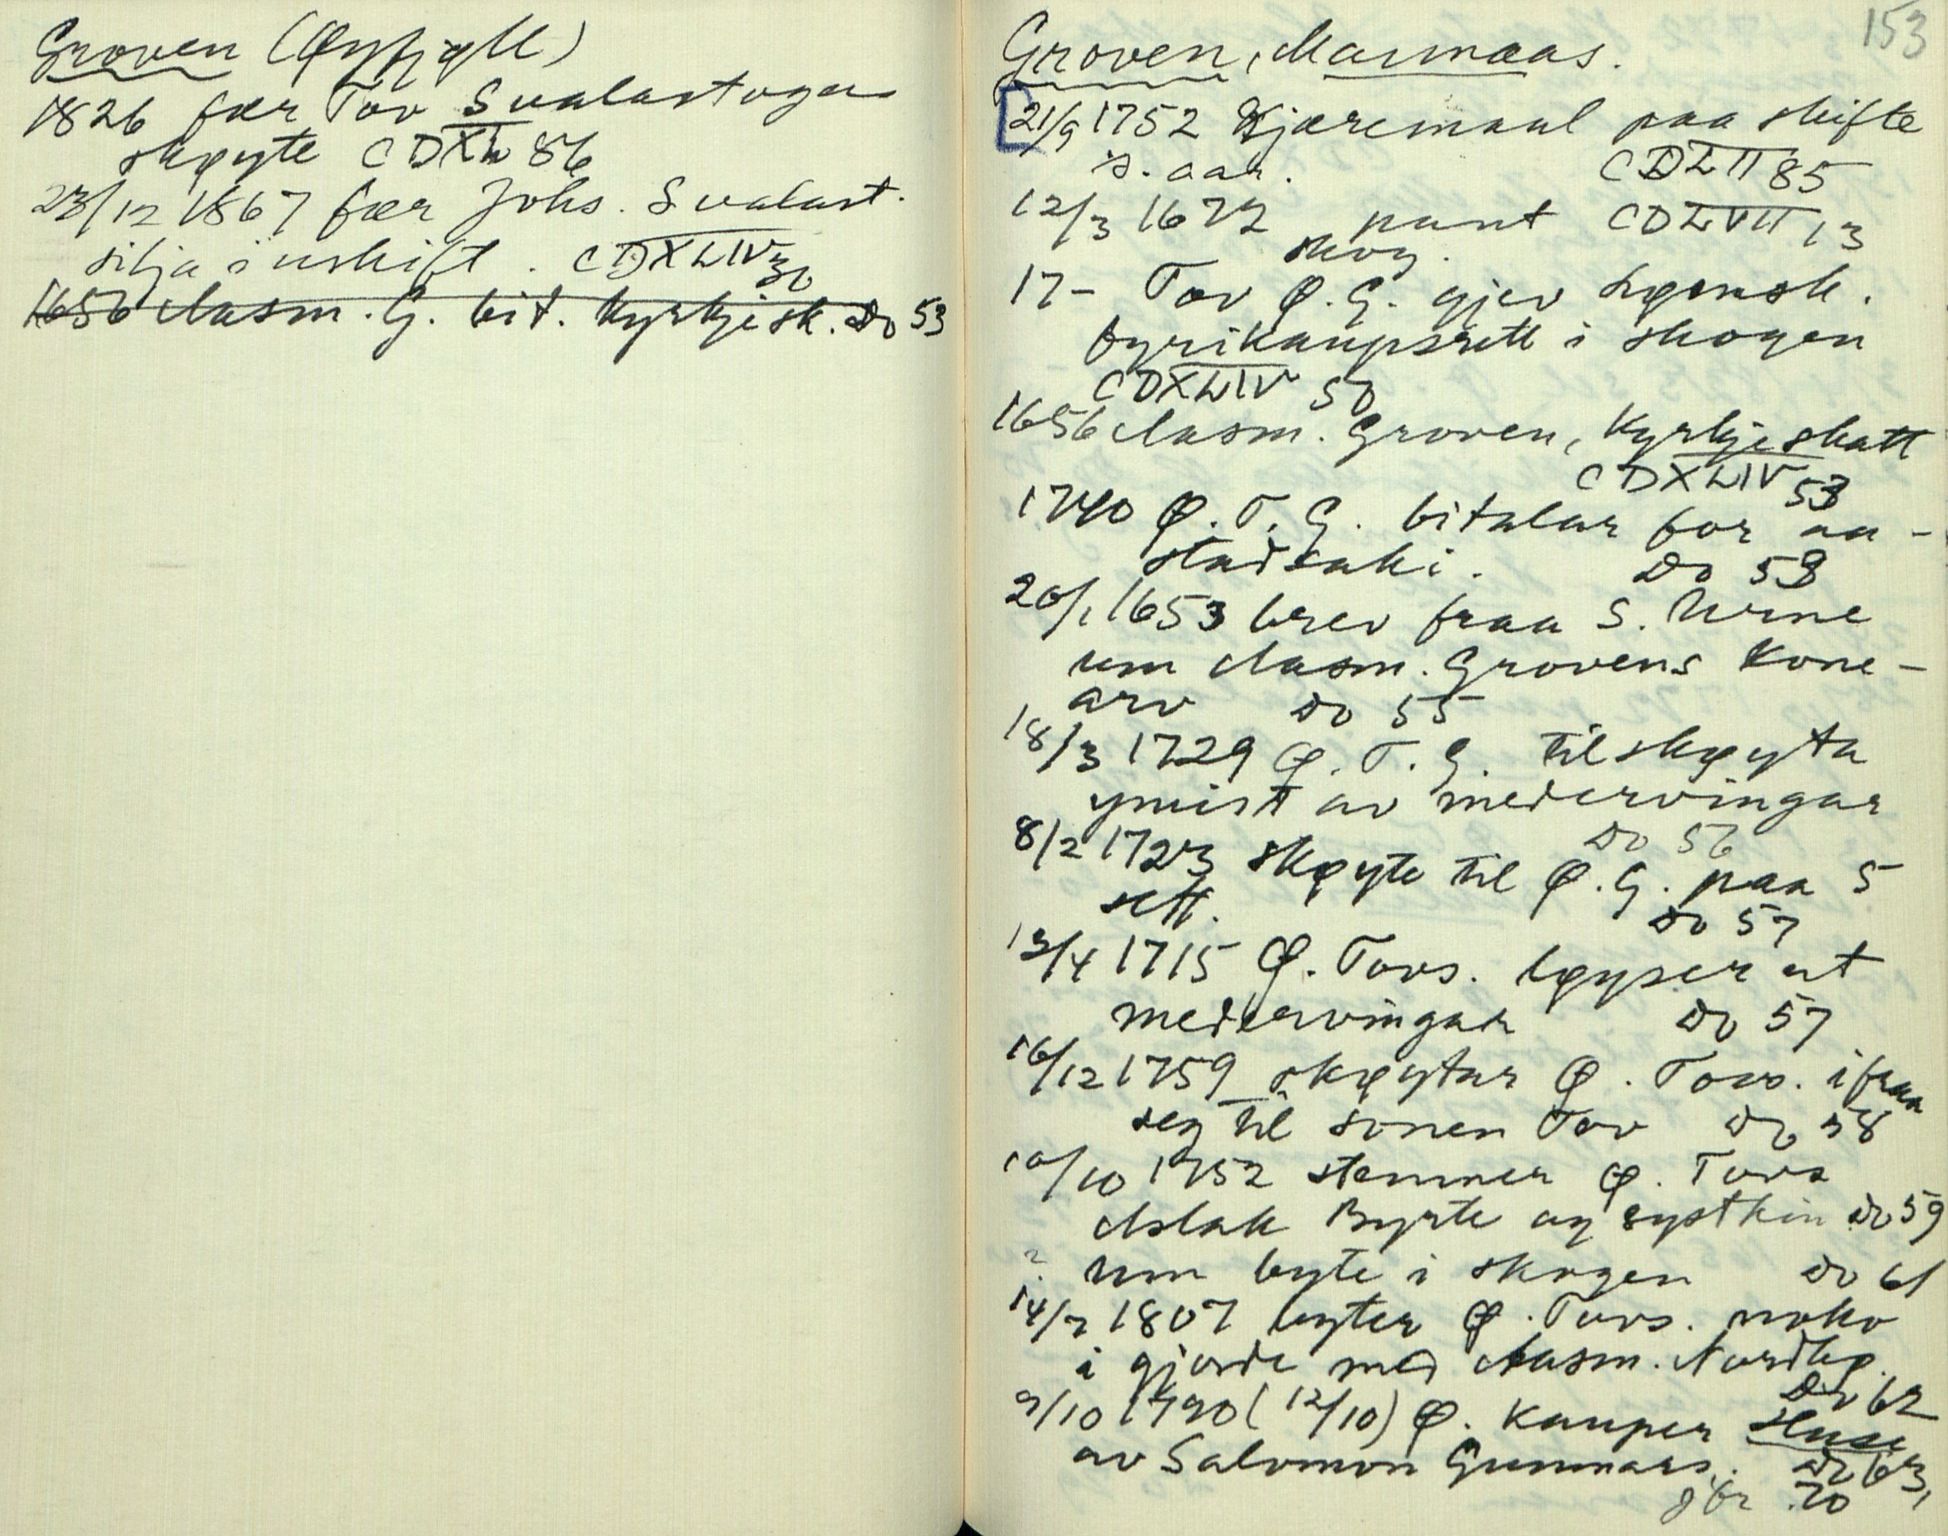 Groven (Øyfjell)
1826 fær Tov Svalastogen
skøyte CDXL 86
23/12 1867 fær Johs. Svalast.
silja i uskift. CDXLIV 30
1656 Aasm. G. bit. kyrkjesk. Do 53
153
Groven, Maurnaas.
21/9 1752 Kjæremaal paa skifte
s. aar. CDLII 85
12/3 1672 pant CDLVII 13
skog.
17- Tov Ø. G. gjev
fyrikaupsrett i skogen
CDXLIV 50
1656 Aasm. Groven, Kyrkjeskatt
CDXLIV 53
1740 Ø. T. G. bitalar for aa-
stadsaki. Do 53
20/1 1653 brev fraa S. Urne
um Aasm. Grovens kone-
arv Do 55
18/3 1729 Ø. T. G. tilskøyta
ymist av medervingar
Do 56
8/2 1723 skøyte til Ø. G. paa 5
sett. Do 57
13/4 1715 Ø. Tovs. løyser ut
medervingar Do 57
16/12 1759 skøytar Ø. Tovs. ifraa
seg til sonen Tov Do 58
10/10 1752 stemner Ø. Tovs
Aslak Byrte og systkin Do 59
? um byte i skogen Do 61
14/7 1807 byter Ø. Tovs. noko
i gjorde med Aasm. Nordbø.
Do 62
9/10 1790 (12/10) Ø. kauper Huse
av Salomon Gunnars. Do 63,
jfr 70